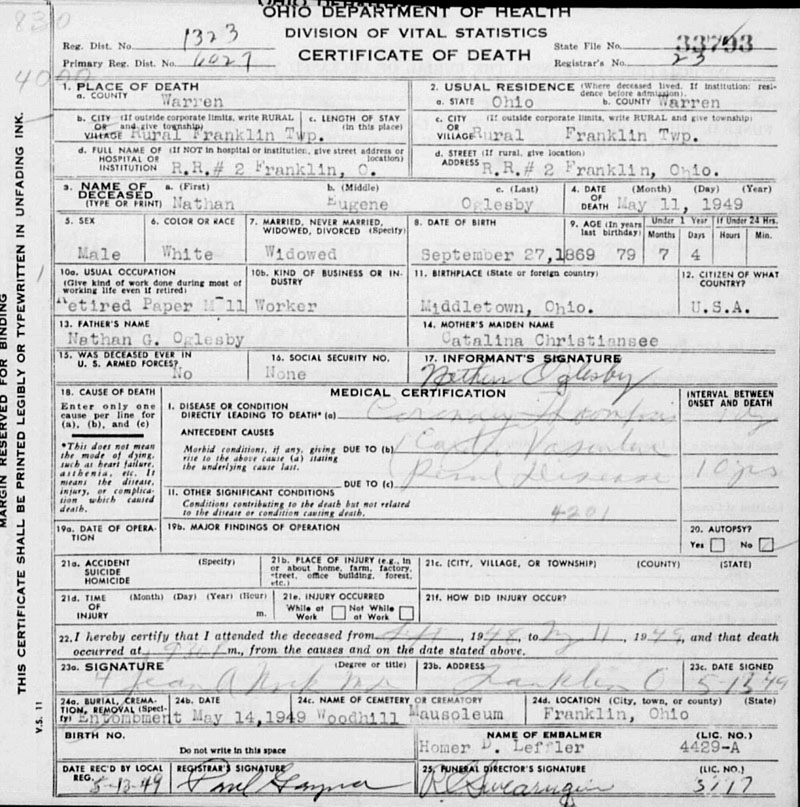 OHIO DEPARTMENT OF HEALTH
DIVISION OF VITAL STATISTICS
CERTIFICATE OF DEATH
Reg. Dist. No. 1323
State File No. 33793
Primary Reg. Dist. No. 6027
Registrar's No. 23
MARGIN RESERVED FOR BINDING
THIS CERTIFICATE SHALL BE PRINTED LEGIBLY OR TYPEWRITTEN IN UNFADING INK.
V.S. 11
1. PLACE OF DEATH
a. COUNTY Warren
2. USUAL RESIDENCE (Where deceased lived. If institution: residence before admission).
a. STATE Ohio b. COUNTY Warren
b. CITY (If outside corporate limits, write RURAL
OR and give township)
VILLAGE Rural Franklin Twp.
c. LENGTH OF STAY
(in this place)
c. CITY (If outside corporate limits, write RURAL and give township)
OR
VILLAGE Rural Franklin Twp.
d. FULL NAME OF (If NOT in hospital or institution, give street address or
HOSPITAL OR location)
INSTITUTION R.R.# 2 Franklin, O.
d. STREET (If rural, give location)
ADDRESS R.R.# 2 Franklin, Ohio.
3. NAME OF a. (First) b. (Middle) c. (Last)
DECEASED
(TYPE OR PRINT) Nathan Eugene Oglesby
4. DATE (Month) (Day) (Year)
OF
DEATH May 11, 1949
5. SEX
Male
6. COLOR OR RACE
White
7. MARRIED, NEVER MARRIED,
WIDOWED, DIVORCED (Specify)
Widowed
8. DATE OF BIRTH
September 27,1869
9. AGE (In years
last birthday)
79
Under 1 Year
Months Days
7 4
If Under 24 Hrs.
Hours Min.
10a. USUAL OCCUPATION
(Give kind of work done during most of
working life even if retired)
Retired Paper Mill
10b. KIND OF BUSINESS OR IN-
DUSTRY
Worker
11. BIRTHPLACE (State or foreign country)
Middletown, Ohio.
12. CITIZEN OF WHAT
COUNTRY?
U.S.A.
13. FATHER'S NAME
Nathan G. Oglesby
14. MOTHER'S MAIDEN NAME
Catalina Christiansee
15. WAS DECEASED EVER IN
U. S. ARMED FORCES?
No
16. SOCIAL SECURITY NO.
None
17. INFORMANT'S SIGNATURE
Nathan Oglesby
18. CAUSE OF DEATH
Enter only one
cause per line for
(a), (b), and (c)
*This does not mean
the mode of dying,
such as heart failure,
asthenia, etc. It
means the disease,
injury, or complica-
tion which caused
death.
MEDICAL CERTIFICATION
INTERVAL BETWEEN
ONSET AND DEATH
I. DISEASE OR CONDITION
DIRECTLY LEADING TO DEATH* (a) Coronary
ANTECEDENT CAUSES
Morbid conditions, if any, giving
rise to the above cause (a) stating
the underlying cause last.
DUE TO (b) Vascular
Renal Disease 10 yrs
DUE TO (c)
II. OTHER SIGNIFICANT CONDITIONS
Conditions contributing to the death but not related
to the disease or condition causing death.
4201
19a. DATE OF OPERA-
TION
19b. MAJOR FINDINGS OF OPERATION
20. AUTOPSY?
Yes No
21a. ACCIDENT (Specify)
SUICIDE
HOMICIDE
21b. PLACE OF INJURY (e.g., in
or about home, farm, factory,
street, office building, forest,
etc.)
21c. (CITY, VILLAGE, OR TOWNSHIP) (COUNTY) (STATE)
21d. TIME (Month) (Day) (Year) (Hour)
OF
INJURY m.
21e. INJURY OCCURRED
While at Work Not While at Work
21f. HOW DID INJURY OCCUR?
22. I hereby certify that I attended the deceased from , 1948, to , 1949, and that death
occurred at m., from the causes and on the date stated above.
23a. SIGNATURE (Degree or title)
23b. ADDRESS
Franklin O
23c. DATE SIGNED
5-13-49
24a. BURIAL, CREMA-
TION, REMOVAL (Speci-
fy) Entombment
24b. DATE
May 14,1949
24c. NAME OF CEMETERY OR CREMATORY
Woodhill Mausoleum
24d. LOCATION (City, town, or county) (State)
Franklin, Ohio
BIRTH NO.
Do not write in this space
NAME OF EMBALMER (LIC. NO.)
Homer D. Leffler 4429-A
DATE REC'D BY LOCAL
REG. 5-13-49
REGISTRAR'S SIGNATURE
25. FUNERAL DIRECTOR'S SIGNATURE (LIC. NO.)
3117